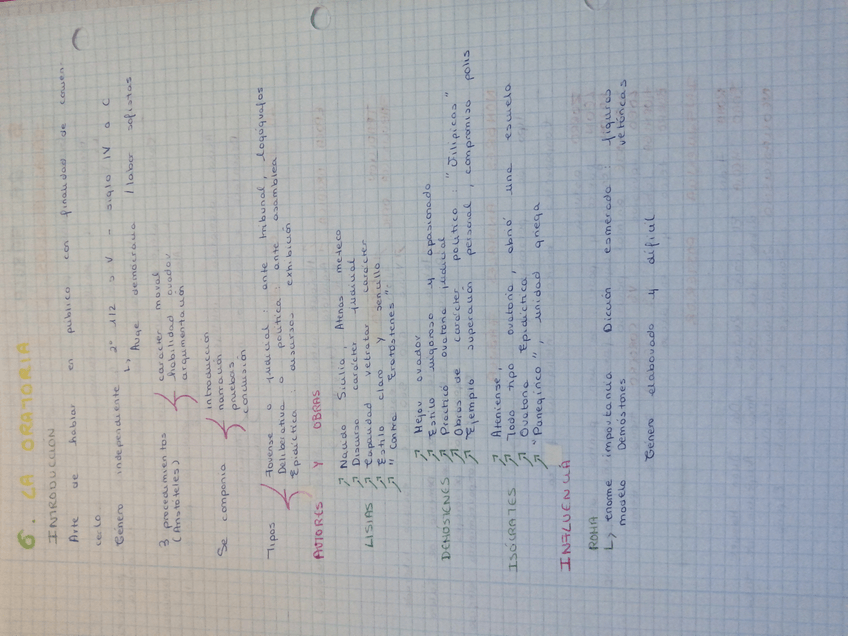 6. LA ORATORIA
INTRODUCCION
Arte de hablar en público con finalidad de conven-
cerlo
Género independiente 2ª 1/2 s V - siglo IV a C
↳ Auge democracia / labor sofistas
3 procedimientos
(Aristóteles)
carácter moral
habilidad orador
argumentación
Se componía
introducción
narración
pruebas
conclusión
Tipos
Forense o judicial: ante tribunal, logógrafos
Deliberativa o política: ante asamblea
Epidíctica: discursos exhibición
AUTORES Y OBRAS
LISIAS
Nacido Sicilia, Atenas meteco
Discurso carácter judicial
Capacidad retratar carácter
Estilo claro y sencillo
"Contra Eratóstenes"
DEMOSTENES
Mejor orador
Estilo vigoroso y apasionado
Practicó oratoria judicial
Obras de carácter político: "Filípicas"
Ejemplo superación personal, compromiso polis
ISÓCRATES
Ateniense,
Todo tipo oratoria, abrió una escuela
Oratoria Epidíctica
"Panegírico", unidad griega
INFLUENCIA
ROMA
↳ Enorme importancia Dicción esmerada: figuras
modelo Demóstenes retóricas
Género elaborado y difícil